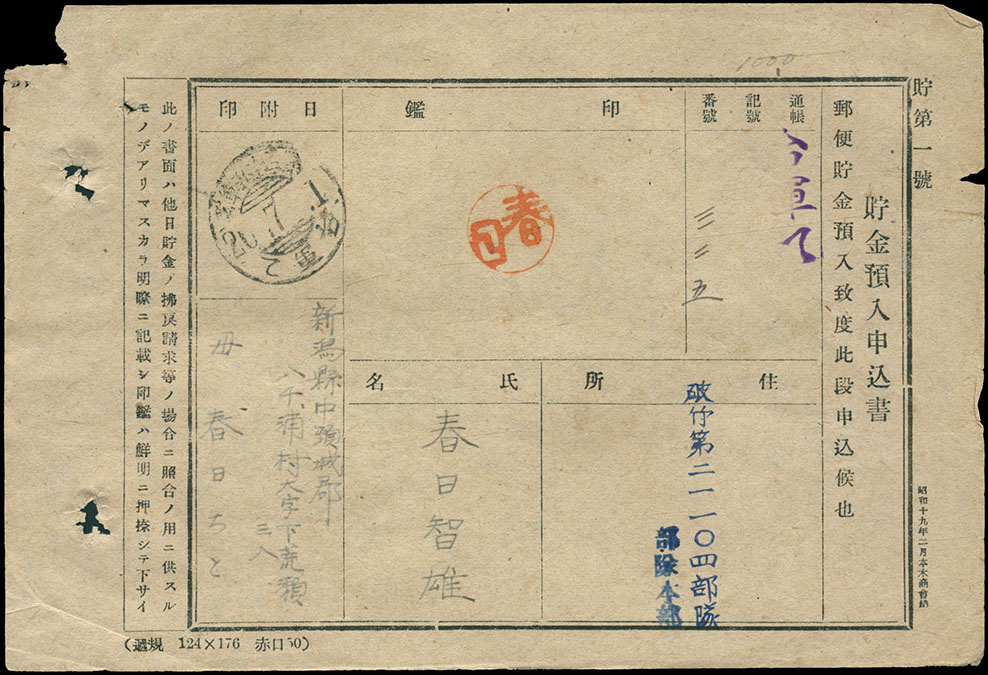 貯第一號
貯金預入申込書
昭和十九年二月本木商會納
郵便貯金預入致度此段申込候也
1000
通帳
記號
番號
三二五
印鑑
春日
住所
破竹第二一一〇四部隊
部隊本部
氏名
春日智雄
日附印
20.7.1
新潟縣中頸城郡
八千浦村大字下荒濱
三八
母春日ちと
此ノ書面ハ他日貯金ノ拂戾請求等ノ場合ニ照合ノ用ニ供スル
モノデアリマスカラ明瞭ニ記載シ印鑑ハ鮮明ニ押捺シテ下サイ
124×176